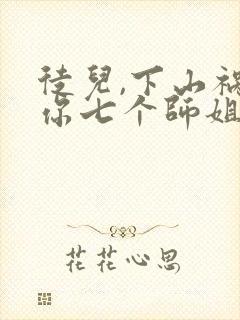 徒兒,下山祸
你七个師姐
花花心思